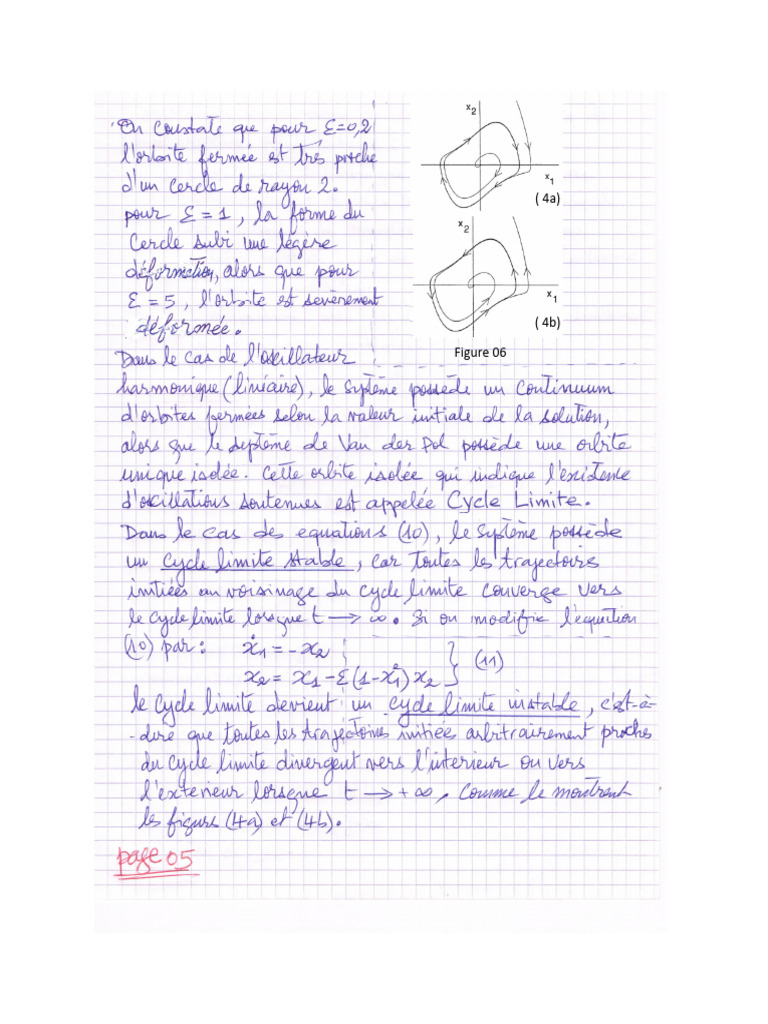 On constate que pour ε=0,2
l'orbite fermée est très proche
d'un cercle de rayon 2.
pour ε = 1, la forme du
Cercle subi une légère
déformation, alors que pour
ε = 5, l'orbite est sevèrement
déformée.
x2
x1
(4a)
x2
x1
(4b)
Figure 06
Dans le cas de l'oscillateur
harmonique (linéaire), le système possède un continuum
d'orbites fermées selon la valeur initiale de la solution,
alors que le système de Van der Pol possède une orbite
unique isolée. Cette orbite isolée qui indique l'existence
d'oscillations soutenues est appelée Cycle Limite.
Dans le cas des equations (10), le système possède
un cycle limite stable, car toutes les trajectoirs
initiées au voisinage du cycle limite converge vers
le cycle limite lorsque t → ∞. Si on modifie l'équation
(10) par : ẋ1 = -x2
ẋ2 = x1 - ε(1-x1²)x2 } (11)
le cycle limite devient un cycle limite instable, c'est-à-
-dire que toutes les trajéctoires initiées arbitrairement proches
du cycle limite divergent vers l'intérieur ou vers
l'extérieur lorsque t → +∞, comme le montrent
les figurs (4a) et (4b).
page 05